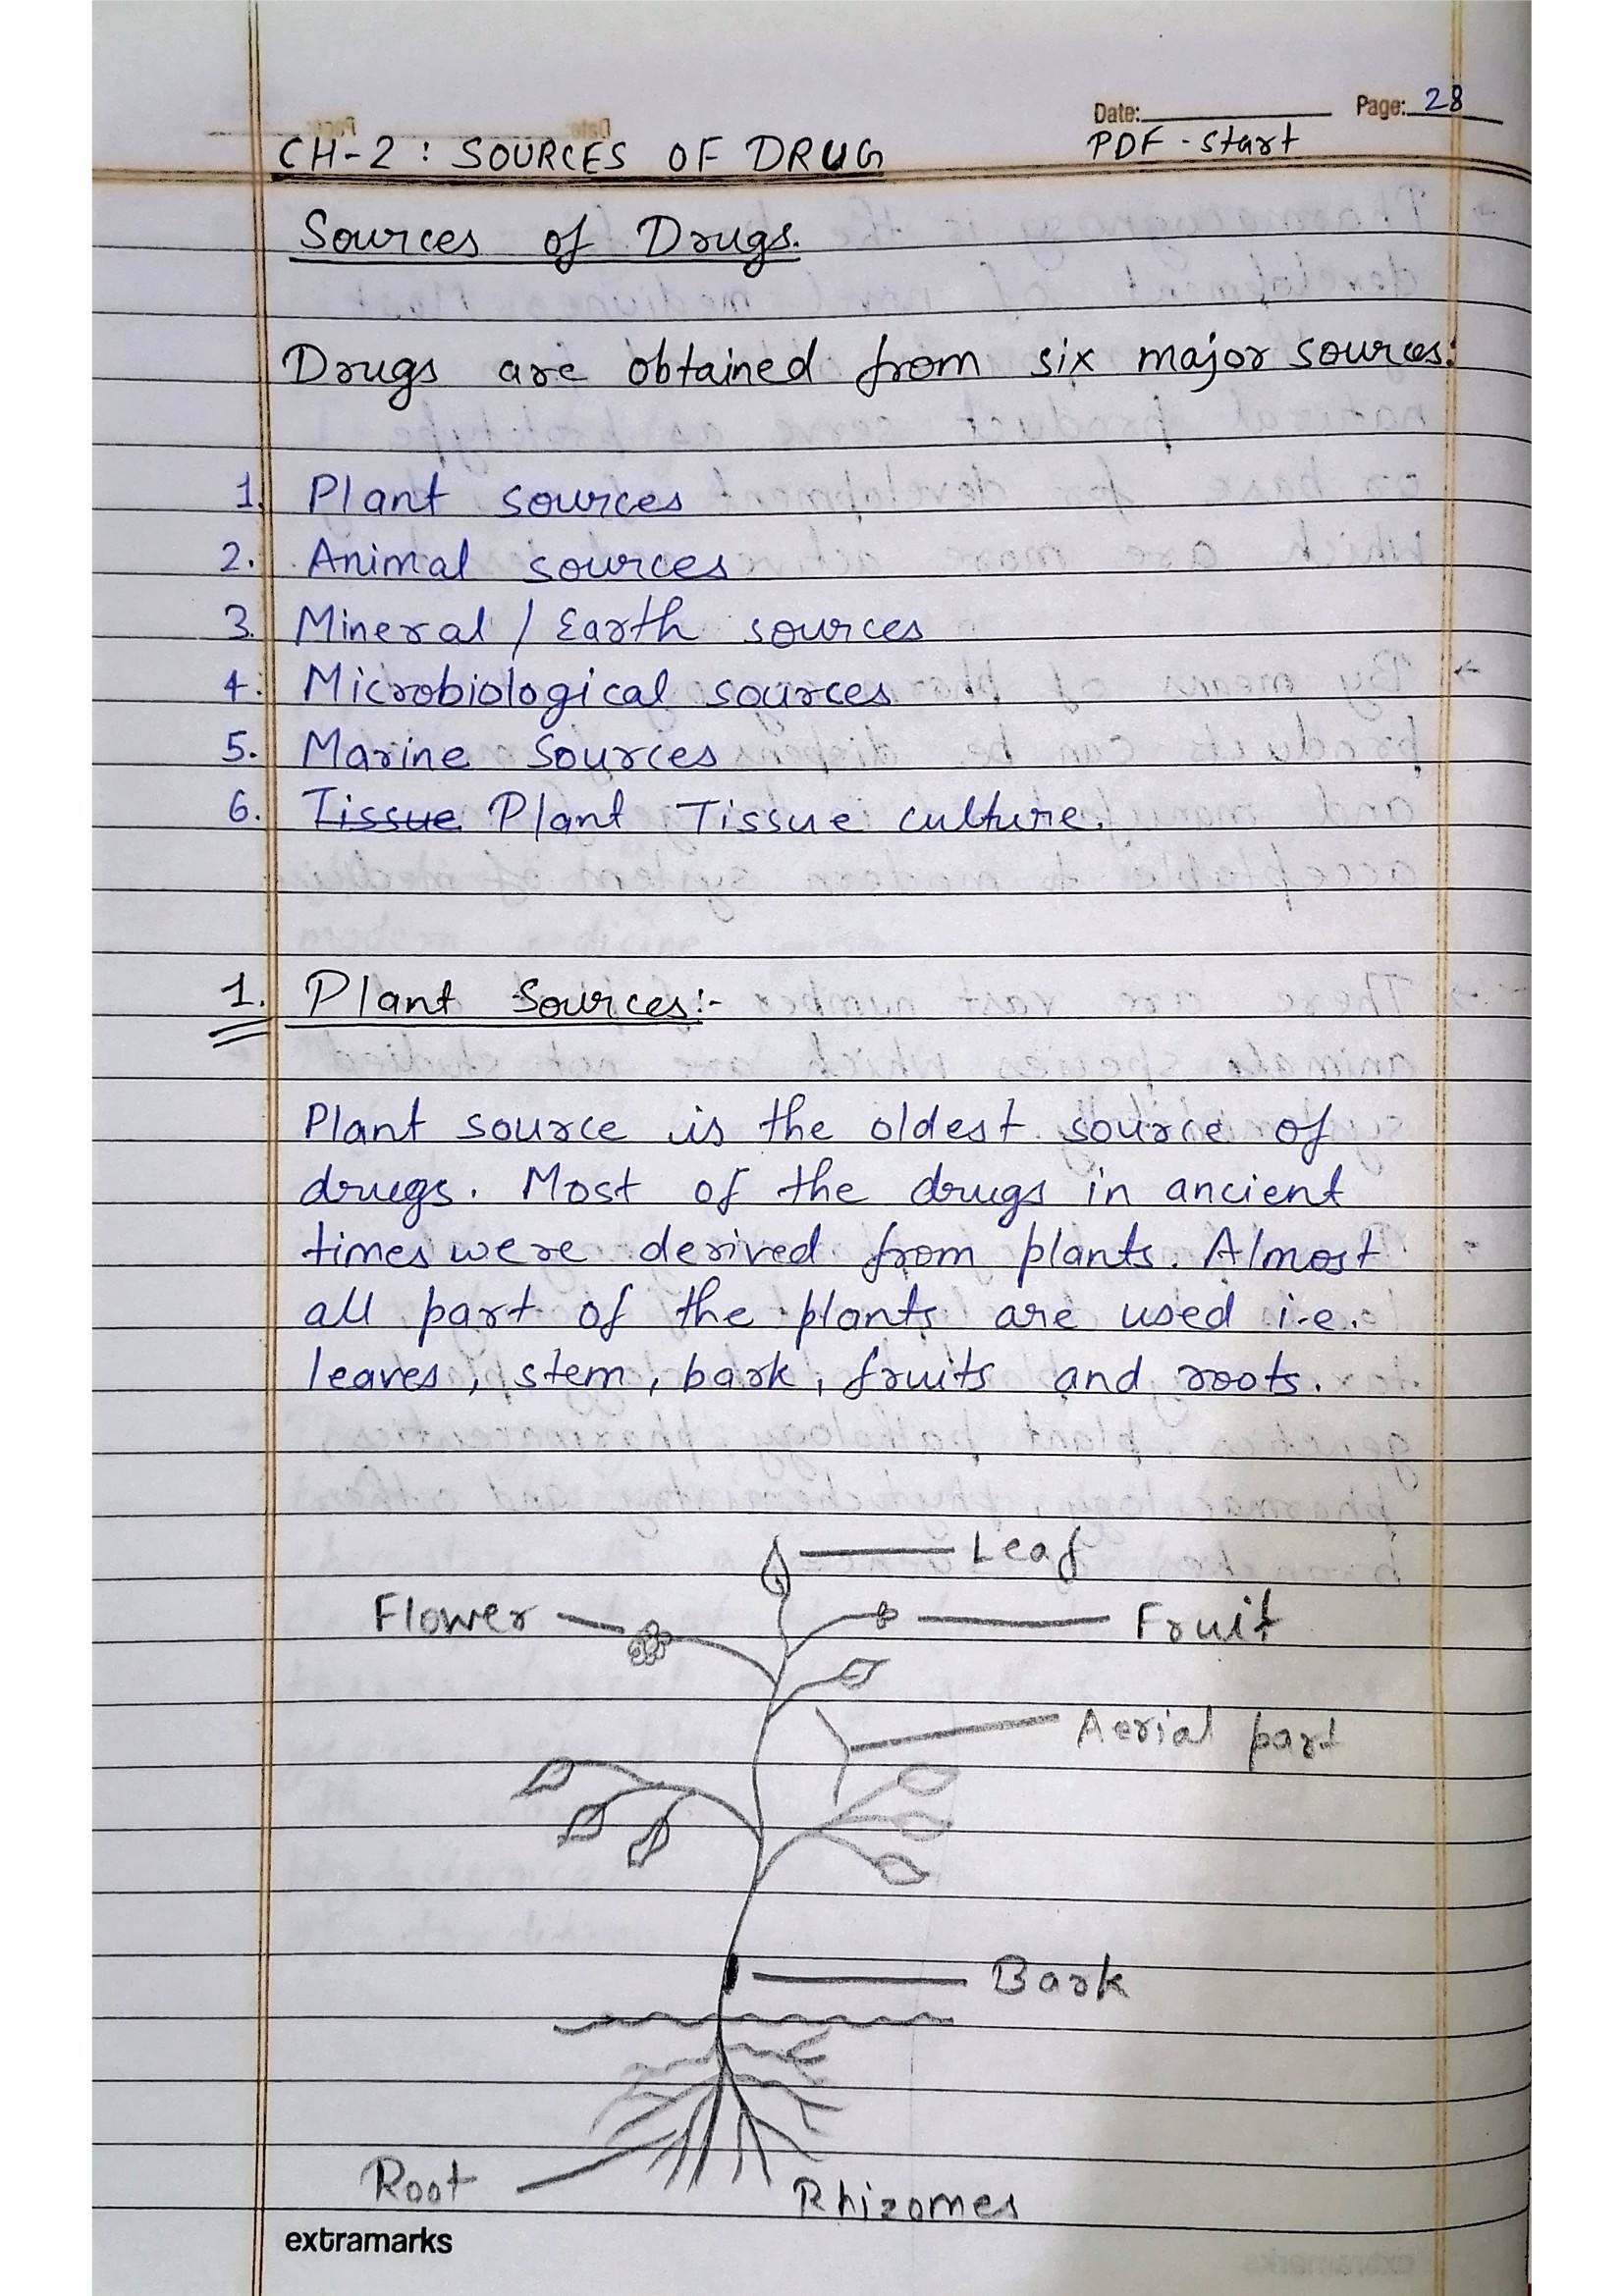 Date: Page: 28
PDF - start
CH-2 : SOURCES OF DRUG
Sources of Drugs.
Drugs are obtained from six major sources:
1. Plant sources
2. Animal sources
3. Mineral / Earth sources
4. Microbiological sources
5. Marine Sources
6. Tissue Plant Tissue culture.
1. Plant Sources:-
Plant source is the oldest source of
drugs. Most of the drugs in ancient
times were derived from plants. Almost
all part of the plants are used i.e.
leaves, stem, bark, fruits and roots.
Leaf
Flower
Fruit
Aerial part
Bark
Root
Rhizomes
extramarks